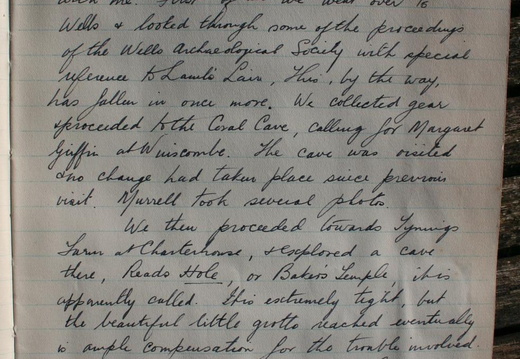 with me. First of all we went over to
Wells & looked through some of the proceedings
of the Wells Archaeological Society with special
reference to Lamb's Lair, This, by the way,
has fallen in once more. We collected gear
& proceeded to the Coral Cave, calling for Margaret
Griffin at Winscombe. The cave was visited
& no change had taken place since previous
visit. Murrell took several photos.
We then proceded towards Tynings
Farm at Charterhouse, & explored a cave
there, Reads Hole, or Baker's Temple, it is
apparently called. It is extremely tight, but
the beautiful little grotto reached eventually
is ample compensation for the trouble involved.